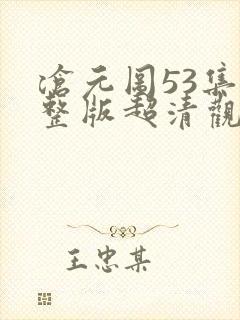 滄元圖53集
整版超清觀
王忠某